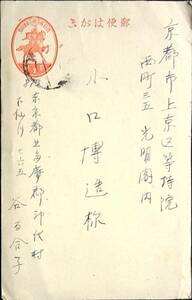 郵便はがき
京都市上京区等持院
西町三五 光明園内
小口博造様
東京都北多摩郡神代村
谷百合子